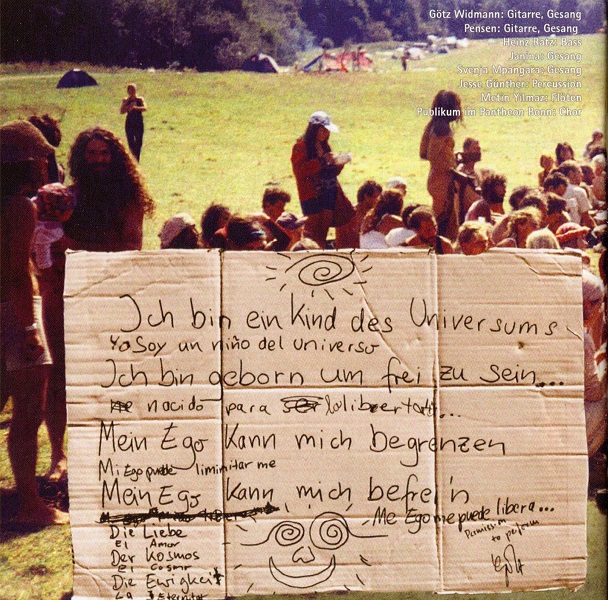 Götz Widmann: Gitarre, Gesang
Pensen: Gitarre, Gesang
Heinz Ratz: Bass
Janina: Gesang
Svenja Mpangara: Gesang
Jesse Günther: Percussion
Metin Yilmaz: Flöten
Publikum im Pantheon Bonn: Chor
Ich bin ein Kind des Universums
Yo Soy un niño del universo
Ich bin geborn um frei zu sein...
nacido para
Mein Ego Kann mich begrenzen
Mi Ego puede liminitar me
Mein Ego Kann mich befrei'n
Me Ego me puede libera...
Die Liebe
el Amor
Der Kosmos
el Cosmr
Die Ewigkeit
La
Permission
to perform